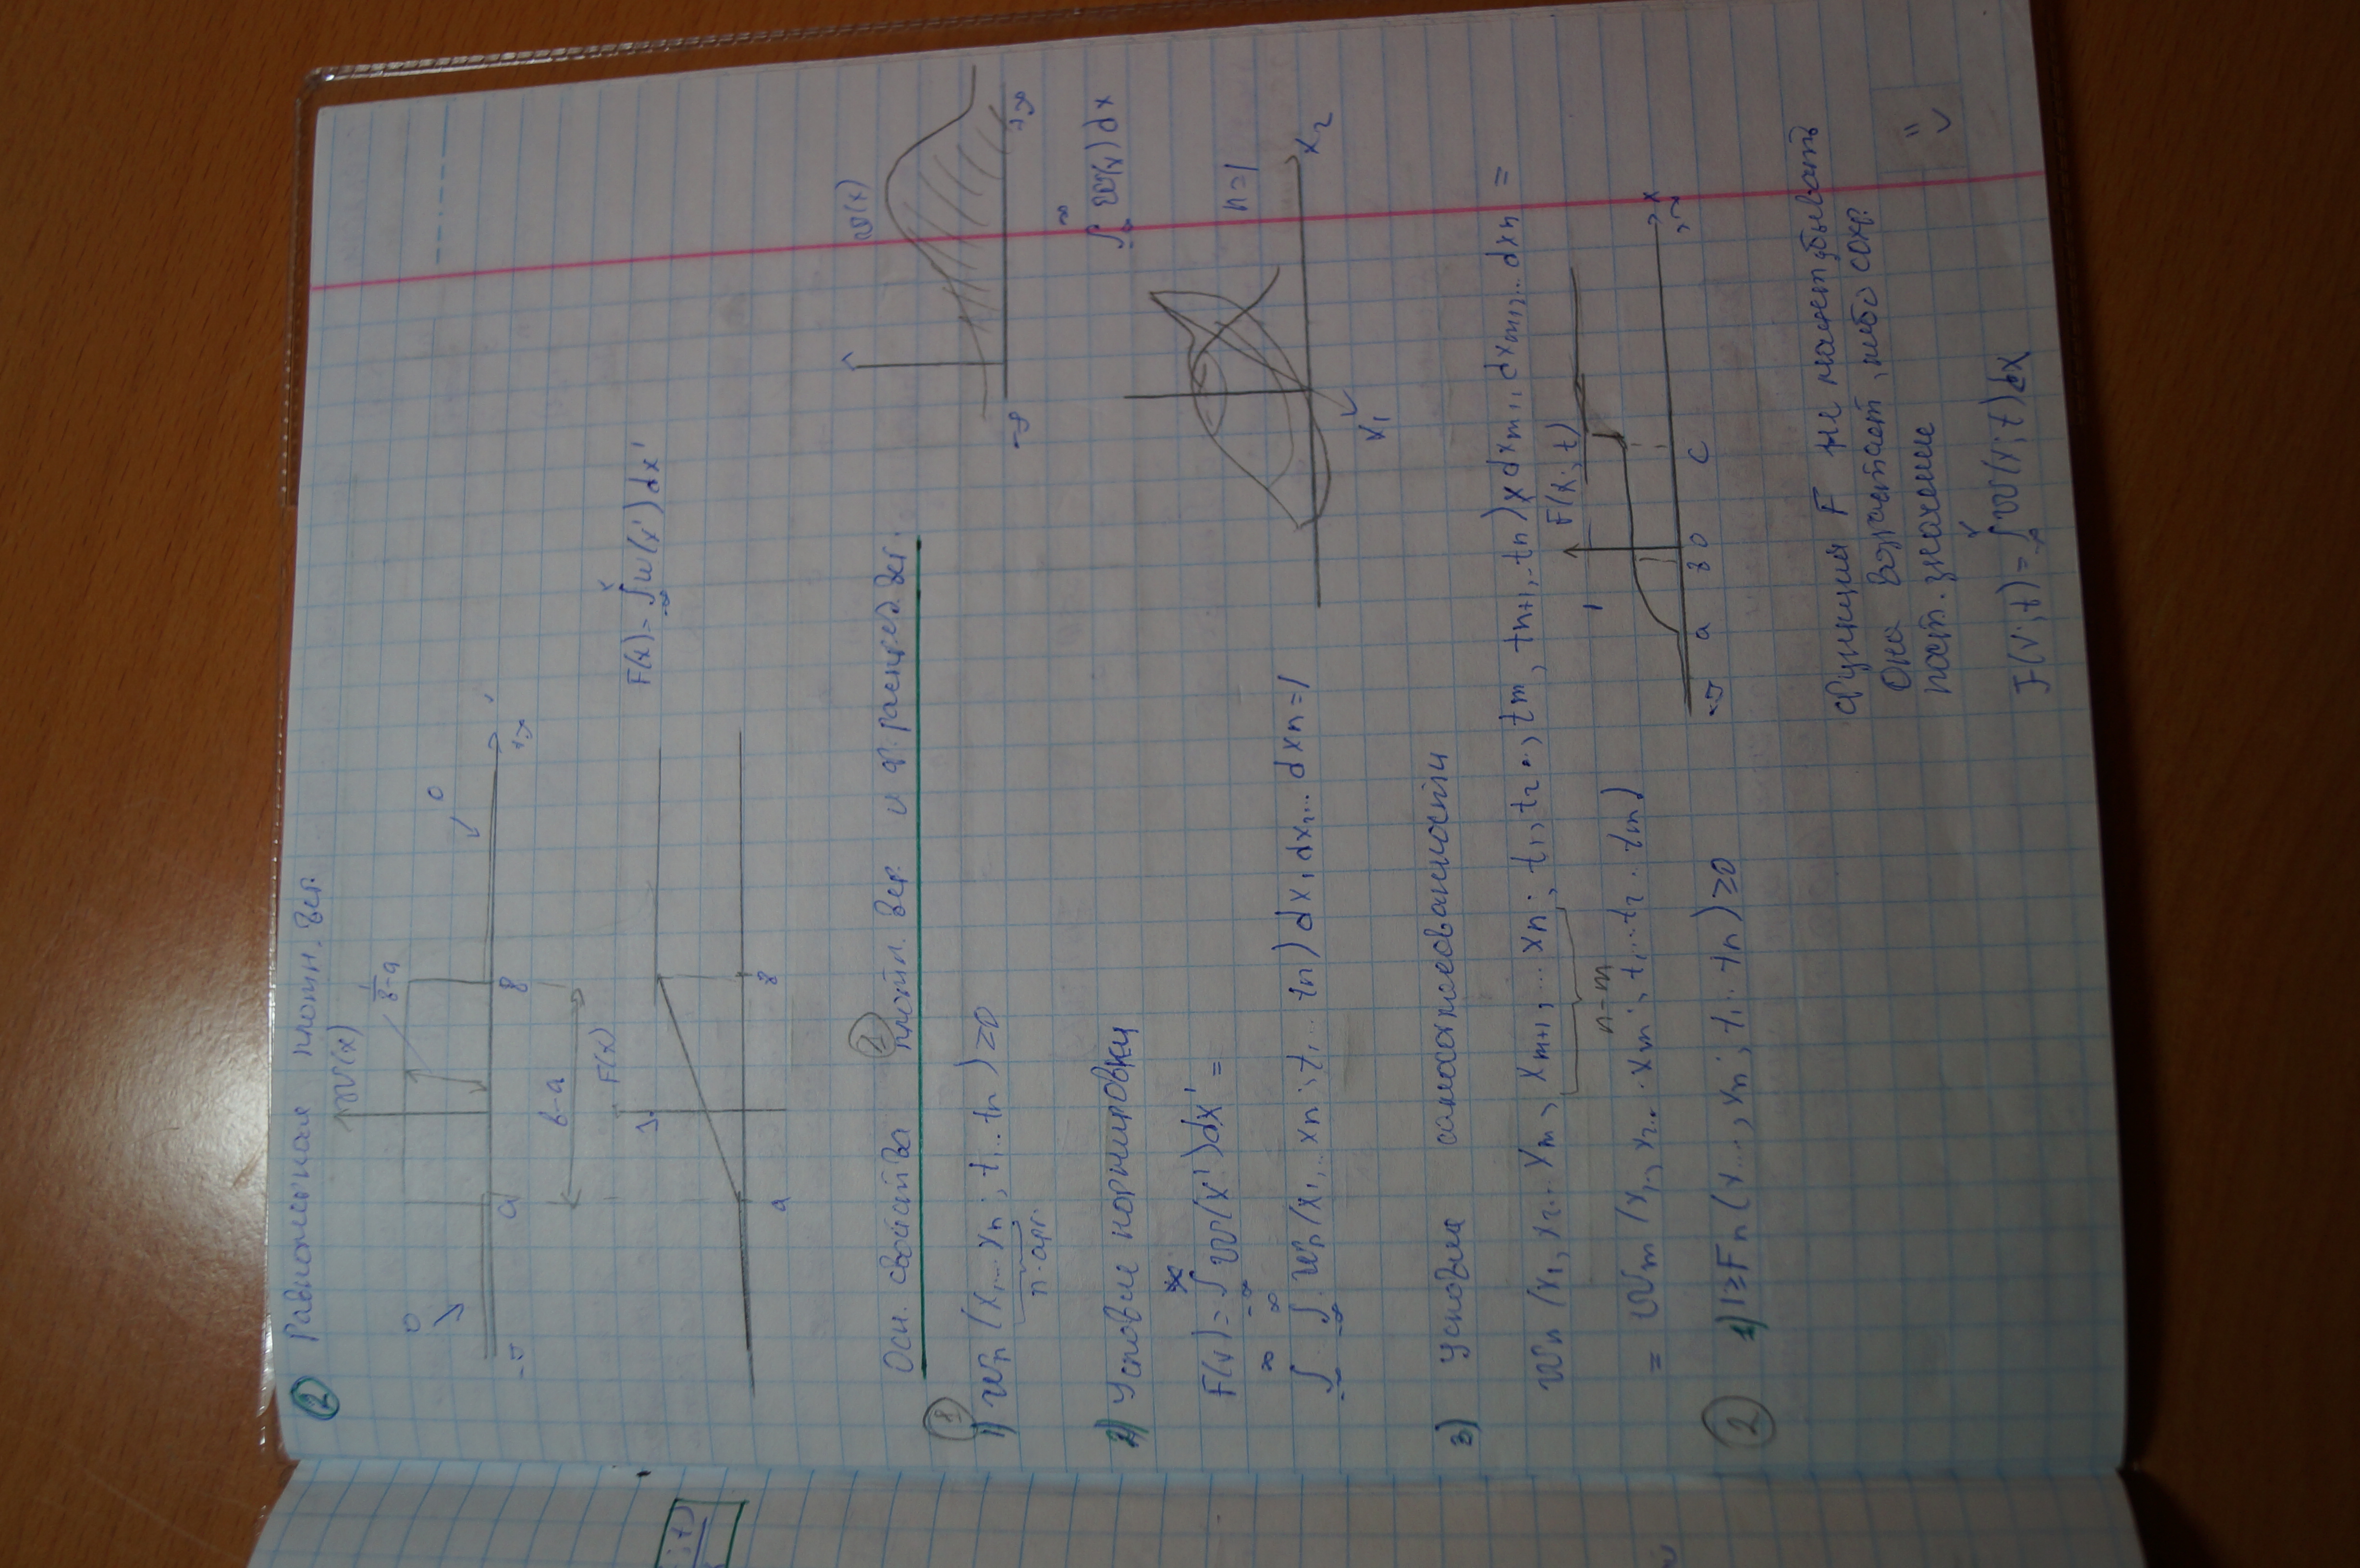 ② Равномерная плотн. вер.
W(x)
1/(в-а)
0
0
-∞ а в +∞
в-а
F(x)
1
F(x)=∫_{-∞}^{x} W(x')dx'
а в
Осн. свойства ① плотн. вер. и ф. распред. вер.
W(x)
-∞ +∞
①
1) Wn (x1...xn; t1...tn) ≥0
n-арг.
∫_{-∞}^{∞} W(x)dx
2) Условие нормировки
F(x)=∫_{-∞}^{∞} W(x')dx'=
n=1
∫_{-∞}^{∞} ∫_{-∞}^{∞} Wn(x1,...xn; t1...tn)dx1dx2...dxn=1
x2
x1
3) Условие самосогласованности
Wn (x1, x2...xm, xm+1,...xn; t1, t2..., tm, tn+1,...tn)x dxm+1, dxm+2,...dxn =
n-m
= Wm (x1, x2...xm; t1...t2...tm)
F(x; t)
1
x
-∞ а в 0 с
② 1) 1≥Fn(x..., xn; t1...tn)≥0
Функция F не может убывать
Она возрастает, либо сохр.
пост. значение
F(x; t)=∫_{-∞}^{x} W(x; t)dx